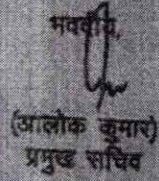 भवदीय,
(आलोक कुमार)
प्रमुख सचिव